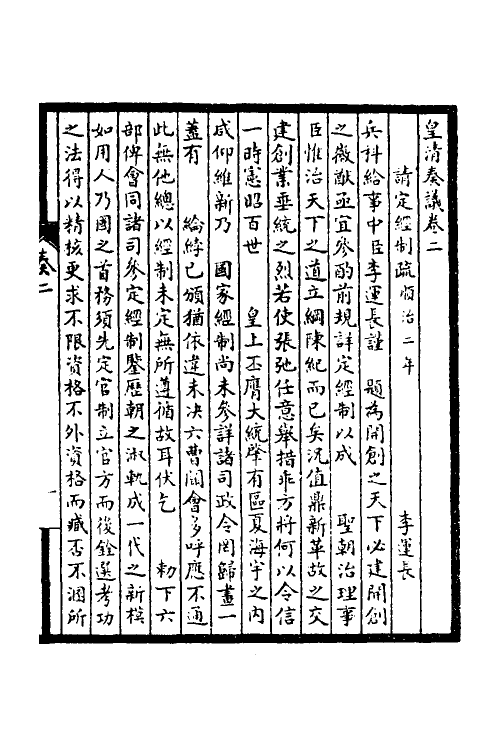 皇清奏議卷二
請定經制疏順治二年 李運長
兵科給事中臣李運長謹 題為開創之天下必建開創
之徽猷亟宜參酌前規詳定經制以成 聖朝治理事
臣惟治天下之道立綱陳紀而已矣況值鼎新革故之交
建創業垂統之烈若使張弛任意舉措乖方將何以令信
一時憲昭百世 皇上丕膺大統肇有區夏海宇之內
咸仰維新乃 國家經制尚未參詳諸司政令罔歸畫一
蓋有 綸綍已頒猶依違未决六曹關會多呼應不通
此無他總以經制未定無所遵循故耳伏乞 勅下六
部俾會同諸司參定經制鑒歷朝之淑軌成一代之新模
如用人乃國之首務須先定官制立官方而後銓選考功
之法得以精核更求不限資格不外資格而臧否不溷所
奏二